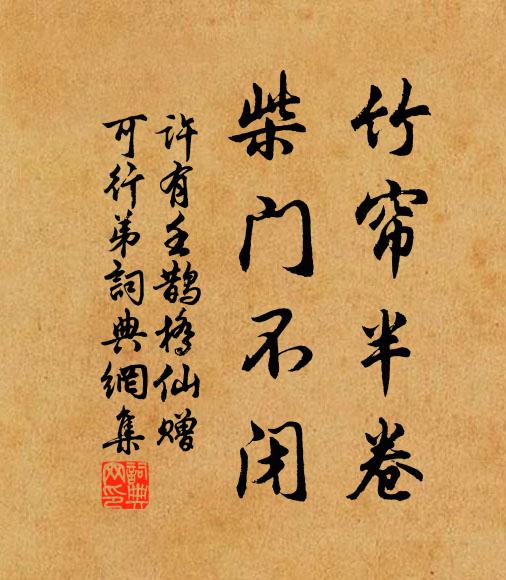 竹帘半卷
柴门不闭
许有壬鹊桥仙赠
可行弟詞典網集
詞典网印